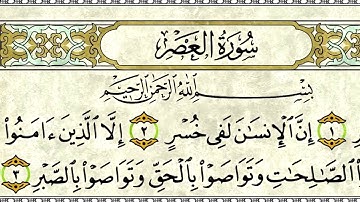 سُورَةُ العَصْرِ
بِسْمِ ٱللَّهِ ٱلرَّحْمَٰنِ ٱلرَّحِيمِ
١ إِنَّ ٱلْإِنسَٰنَ لَفِى خُسْرٍ ٢ إِلَّا ٱلَّذِينَ ءَامَنُوا۟
ٱلصَّٰلِحَٰتِ وَتَوَاصَوْا۟ بِٱلْحَقِّ وَتَوَاصَوْا۟ بِٱلصَّبْرِ ٣